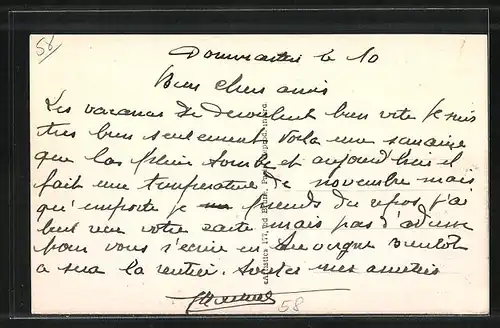 58
le 10
Bien chers amis
Les vacances se deroulent bien vite je suis
tres bien seulement voila une semaine
que la pluie tombe et aujourd'hui il
fait une temperature de novembre mais
qu'importe je prends du repos j'ai
bien reçu votre carte mais pas d'adresse
pour vous s'ecrire en Auvergne Bientot
a sera la rentrée. amitiés
58